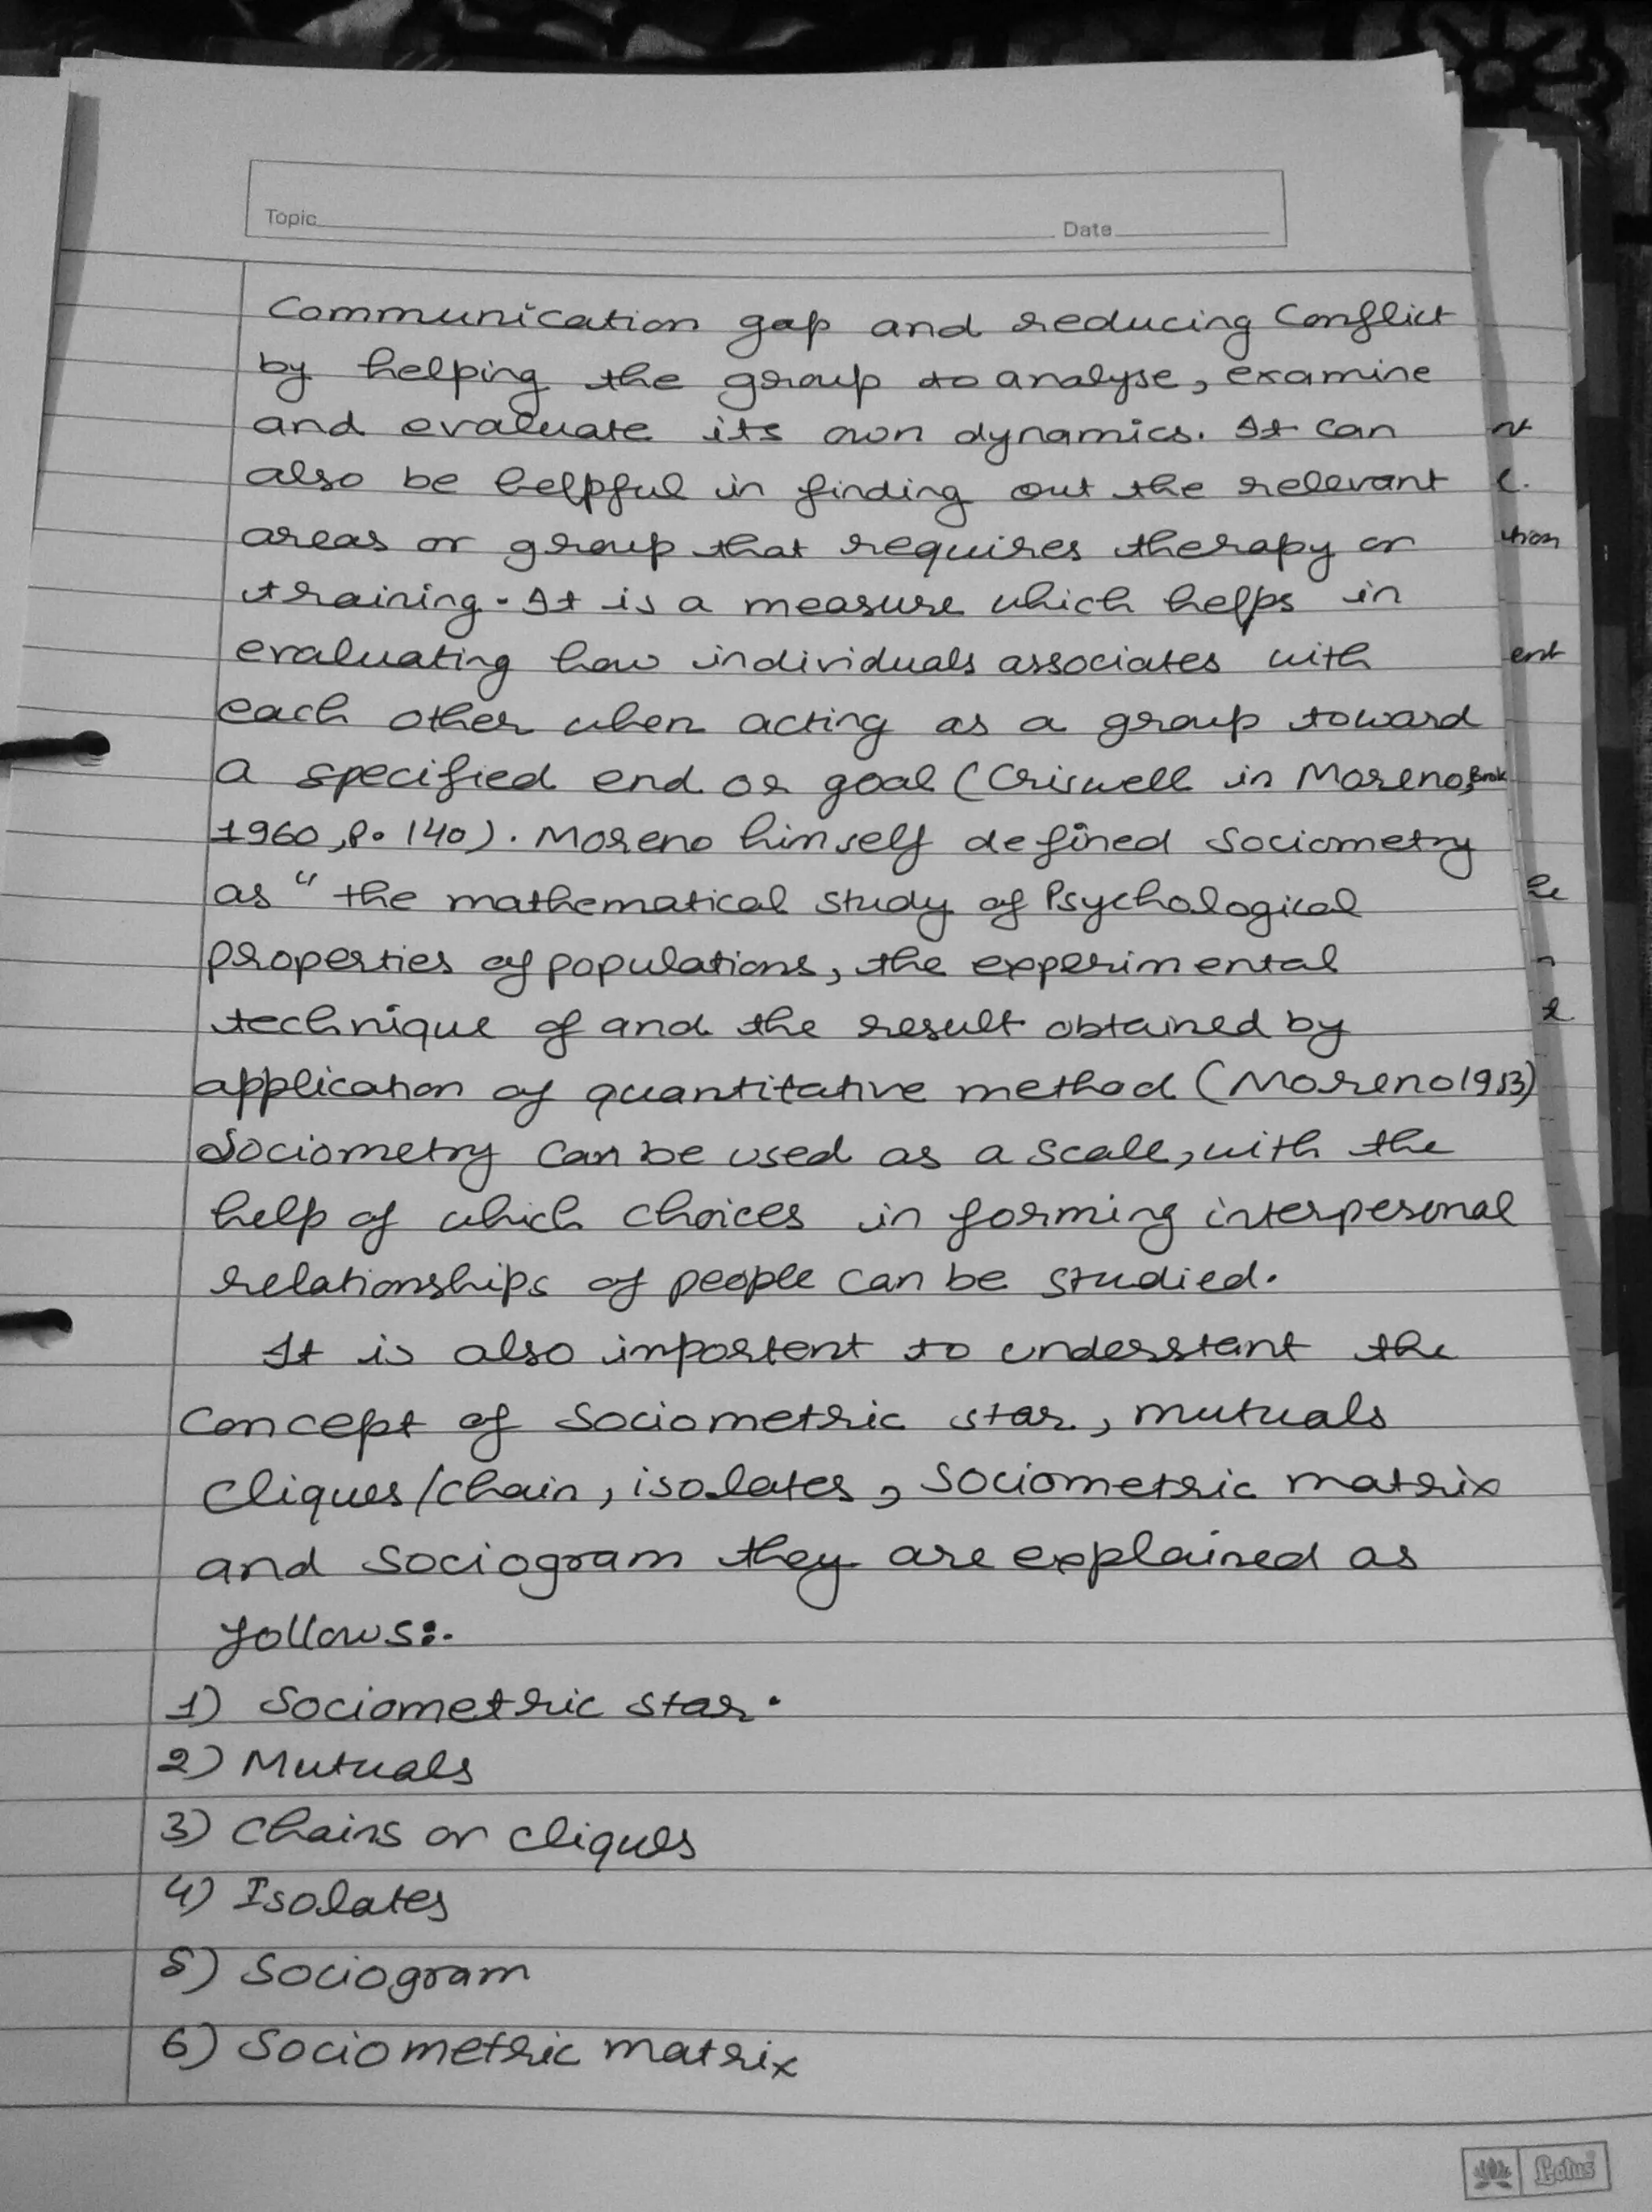 Topic Date
Communication gap and reducing Conflict
by helping the group to analyse, examine
and evaluate its own dynamics. It can
also be helpful in finding out the relevant
areas or group that requires therapy or
training. It is a measure which helps in
evaluating how individuals associates with
each other when acting as a group toward
a specified end or goal (Criswell in Moreno,
1960, P. 140). Moreno himself defined Sociometry
as " the mathematical study of Psychological
properties of populations, the experimental
technique of and the result obtained by
application of quantitative method (Moreno 1953)
Sociometry can be used as a scale, with the
help of which choices in forming interpesonal
relationships of people can be studied.
It is also importent to understant the
Concept of Sociometric star, mutuals
cliques/chain, isolates, Sociometric matrix
and Sociogram they are explained as
follows:.
1) Sociometric star.
2) Mutuals
3) Chains or cliques
4) Isolates
5) Sociogram
6) Sociometric matrix
Lotus